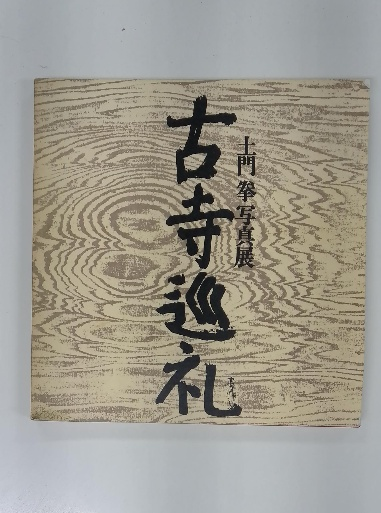 土門拳写真展
古寺巡礼